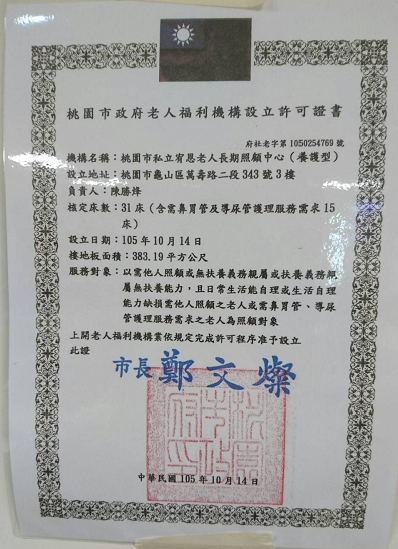 桃園市政府老人福利機構設立許可證書
府社老字第1050254769號
機構名稱：桃園市私立宥恩老人長期照顧中心（養護型）
設立地址：桃園市龜山區萬壽路二段343號3樓
負責人：陳勝烽
核定床數：31床（含需鼻胃管及導尿管護理服務需求15
床）
設立日期：105年10月14日
樓地板面積：383.19平方公尺
服務對象：以需他人照顧或無扶養義務親屬或扶養義務親
屬無扶養能力，且日常生活能自理或生活自理
能力缺損需他人照顧之老人或需鼻胃管、導尿
管護理服務需求之老人為照顧對象
上開老人福利機構業依規定完成許可程序准予設立
此證
市長鄭文燦
中華民國105年10月14日